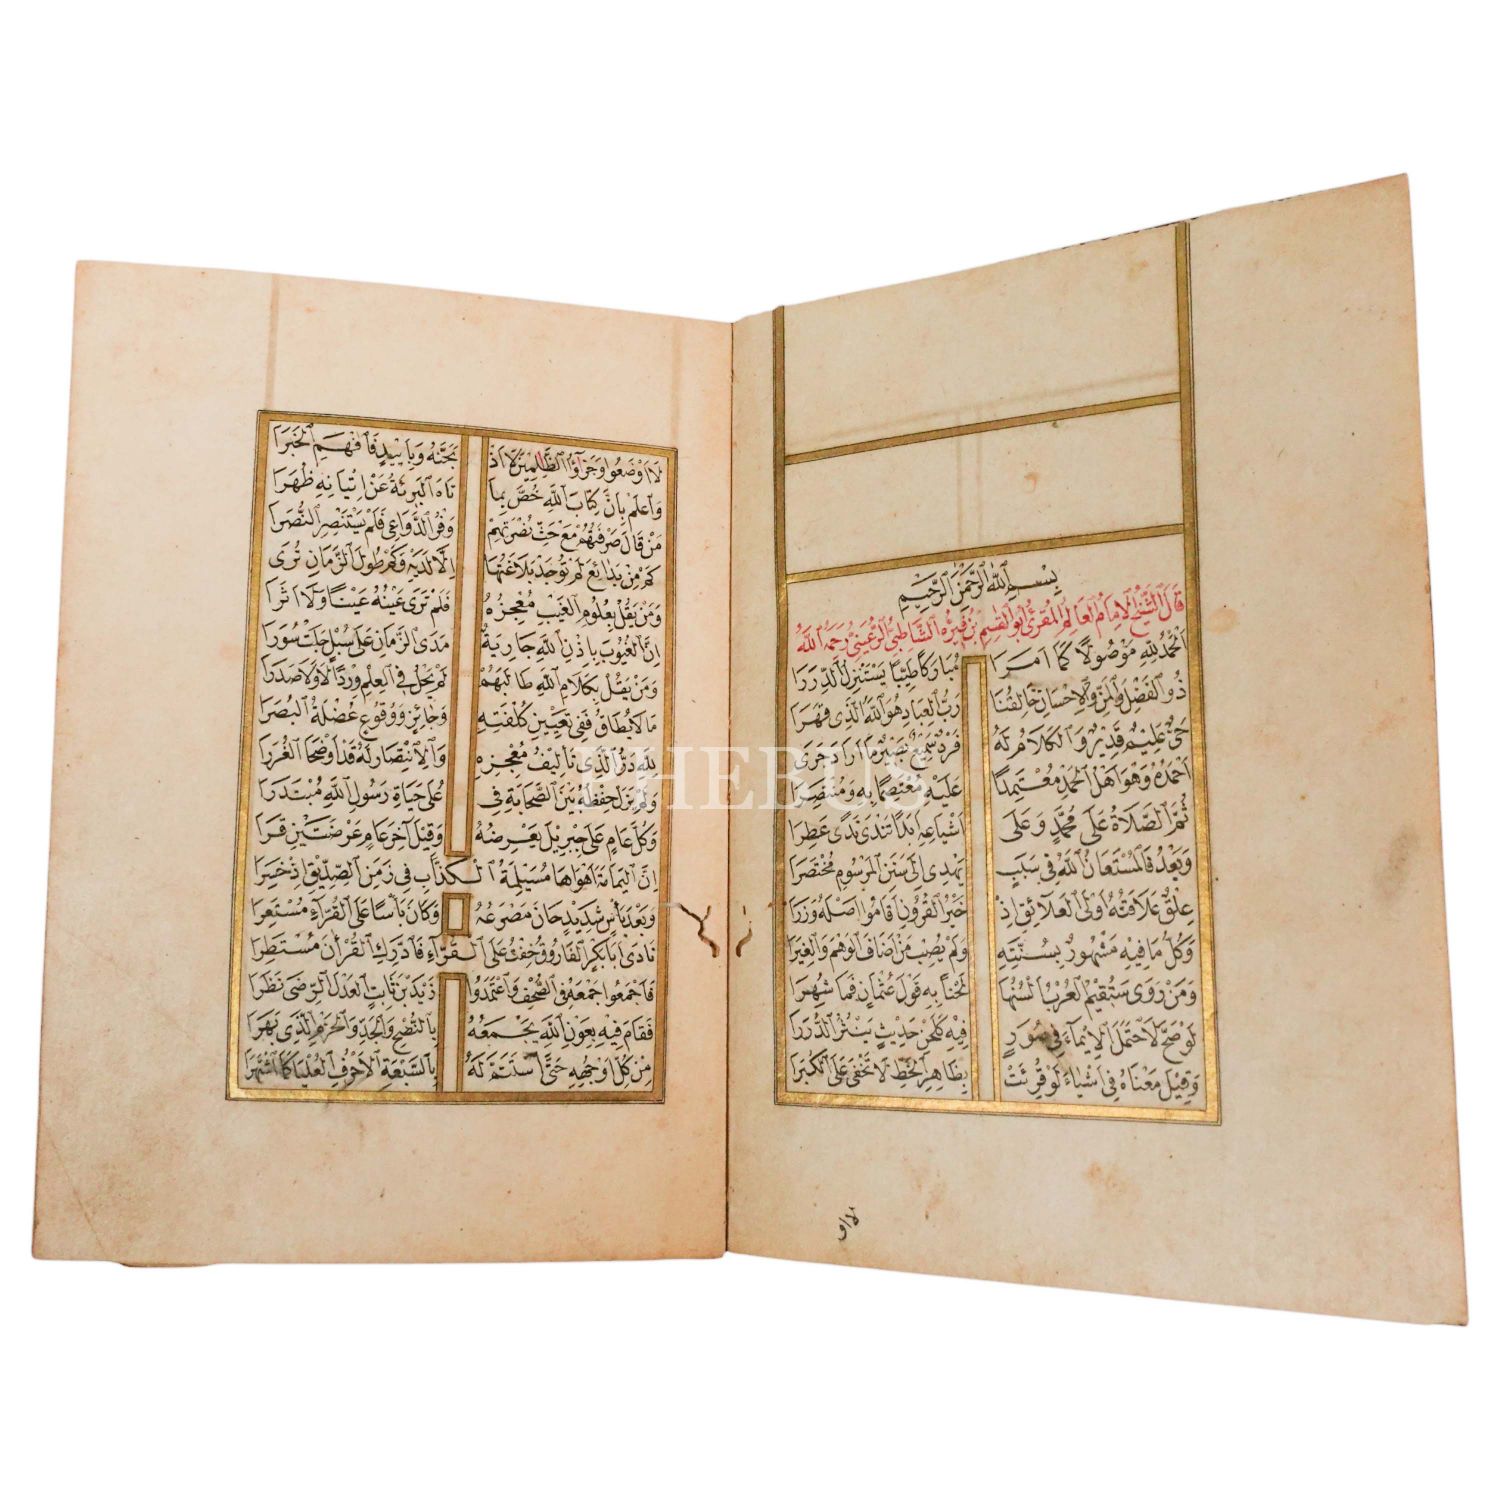 بِسْمِ اللّٰهِ الرَّحْمٰنِ الرَّحِيْمِ
قَالَ الشَّيْخُ الْاِمَامُ الْعَالِمُ الْمُقْرِئُ اَبُو الْقٰسِمِ بْنُ فِيْرُّه الشَّاطِبِيُّ الرُّعَيْنِيُّ رَحِمَهُ اللّٰهُ
اَلْحَمْدُ لِلّٰهِ مَوْصُولًا كَمَا اَمَرَا مُبَارَكًا طَيِّبًا يَسْتَنْزِلُ الدِّرَرَا
ذُو الْفَضْلِ وَالْمَنِّ وَالْاِحْسَانِ خَالِقُنَا رَبُّ الْعِبَادِ هُوَ اللّٰهُ الَّذِى قَهَرَا
حَىٌّ عَلِيْمٌ قَدِيْرٌ وَالْكَلَامُ لَهُ فَرْدٌ سَمِيْعٌ بَصِيْرٌ مَا اَرَادَ جَرَى
اَحْمَدُهُ وَهُوَ اَهْلُ الْحَمْدِ مُعْتَمِدًا عَلَيْهِ مُعْتَصِمًا بِهِ وَمُنْتَصِرَا
ثُمَّ الصَّلَاةُ عَلَى مُحَمَّدٍ وَعَلَى اَشْيَاعِهِ اَبَدًا تَنْدَى نَدًى عَطِرَا
وَبَعْدُ فَالْمُسْتَعَانُ اللّٰهُ فِى سَبَبٍ يَهْدِى اِلَى سَنَنِ الْمَرْسُومِ مُخْتَصِرَا
عِلْقٌ عَلَاقَتُهُ اَوْلَى الْعَلَائِقِ اِذْ خَيْرُ الْقُرُونِ اَقَامُوا اَصْلَهُ وَزَرَا
وَكُلُّ مَا فِيْهِ مَشْهُورٌ بِسُنَّتِهِ وَلَمْ يُصِبْ مَنْ اَضَافَ الْوَهْمَ وَالْغِيَرَا
وَمَنْ رَوَى سَتُقِيْمُ الْعُرْبُ اَلْسُنَهَا لَحْنًا بِهِ قَوْلَ عُثْمَانٍ فَمَا شُهِرَا
لَوْ صَحَّ لَاحْتَمَلَ الْاِيْمَاءَ فِى صُوَرٍ فِيْهِ كَلَحْنِ حَدِيْثٍ يَنْثُرُ الدُّرَرَا
وَقِيْلَ مَعْنَاهُ فِى اَشْيَاءَ لَوْ قُرِئَتْ بِظَاهِرِ الْخَطِّ لَا تَخْفَى عَلَى الْكُبَرَا
لَا اَوْ
لَا اَوْضَعُوا وَجَزَآؤُا الظّٰلِمِيْنَ لَا اَذْ بَحَنَّهُ وَبِاَيْيْدٍ فَافْهَمِ الْخَبَرَا
وَاعْلَمْ بِاَنَّ كِتَابَ اللّٰهِ خُصَّ بِمَا تَاهَ الْبَرِيَّةُ عَنْ اِتْيَانِهِ ظُهَرَا
مَنْ قَالَ صَرْفَتُهُمْ مَعْ حَثِّ نُصْرَتِهِمْ وَفْرُ الدَّوَاعِى فَلَمْ يَسْتَنْصِرِ النُّصَرَا
كَمْ مِنْ بَدَائِعَ لَمْ تُوجَدْ بَلَاغَتُهَا اِلَّا لَدَيْهِ وَكَمْ طُولَ الزَّمَانِ تُرَى
وَمَنْ يَقُلْ بِعُلُومِ الْغَيْبِ مُعْجِزُهُ فَلَمْ تَرَى عَيْنُهُ عَيْنًا وَلَا اَثَرَا
اِنَّ الْغُيُوبَ بِاِذْنِ اللّٰهِ جَارِيَةٌ مَدَى الزَّمَانِ عَلَى سُبْلٍ جَلَتْ سُوَرَا
وَمَنْ يَقُلْ بِكَلَامِ اللّٰهِ طَالَبَهُمْ لَمْ يَحْلُ فِى الْعِلْمِ وِرْدًا لَا وَلَا صَدَرَا
مَا لَا يُطَاقُ فَفِى تَعْيِيْنِ كُلْفَتِهِ وَجَائِزٍ وَوُقُوعٍ عُضْلَةُ الْبُصَرَا
لِلّٰهِ دَرُّ الَّذِى تَأْلِيْفُ مُعْجِزِهِ وَالْاِنْتِصَارِ لَهُ قَدْ اَوْضَحَا الْغُرَرَا
وَلَمْ يَزَلْ حِفْظُهُ بَيْنَ الصَّحَابَةِ فِى عُلَى حَيَاةِ رَسُولِ اللّٰهِ مُبْتَدَرَا
وَكُلَّ عَامٍ عَلَى جِبْرِيْلَ يَعْرِضُهُ وَقِيْلَ آخِرَ عَامٍ عَرْضَتَيْنِ قَرَا
اِنَّ الْيَمَامَةَ اَهْوَاهَا مُسَيْلِمَةُ الْـكَذَّابُ فِى زَمَنِ الصِّدِّيْقِ اِذْ خَسِرَا
وَبَعْدَ بَأْسٍ شَدِيْدٍ حَانَ مَصْرَعُهُ وَكَانَ بَأْسًا عَلَى الْقُرَّاءِ مُسْتَعِرَا
نَادَى اَبَا بَكْرٍ الْفَارُوقُ خِفْتُ عَلَى الْـقُرَّاءِ فَادَّرِكِ الْقُرْآنَ مُسْتَطِرَا
فَاَجْمَعُوا جَمْعَهُ فِى الصُّحْفِ وَاعْتَمَدُوا زَيْدَ بْنَ ثَابِتٍ الْعَدْلَ الرِّضَى نَظَرَا
فَقَامَ فِيْهِ بِعَوْنِ اللّٰهِ يَجْمَعُهُ بِالنُّصْحِ وَالْجِدِّ وَالْحَزْمِ الَّذِى بَهَرَا
مِنْ كُلِّ اَوْجُهِهِ حَتَّى اسْتَتَمَّ لَهُ بِالسَّبْعَةِ الْاَحْرُفِ الْعُلْيَا كَمَا اشْتَهَرَا
PHEBUS